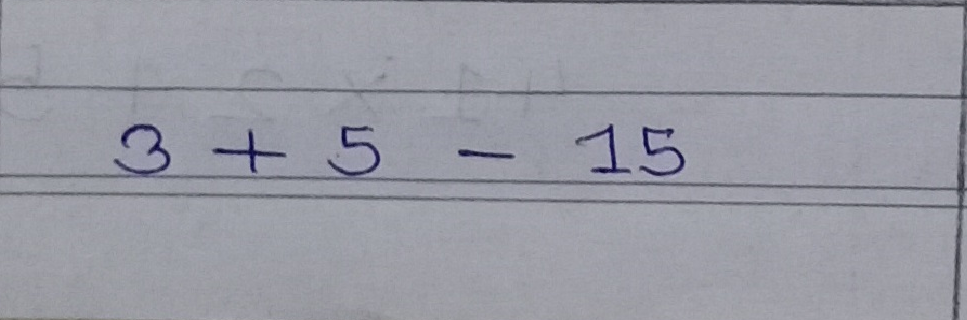 3 + 5 - 15